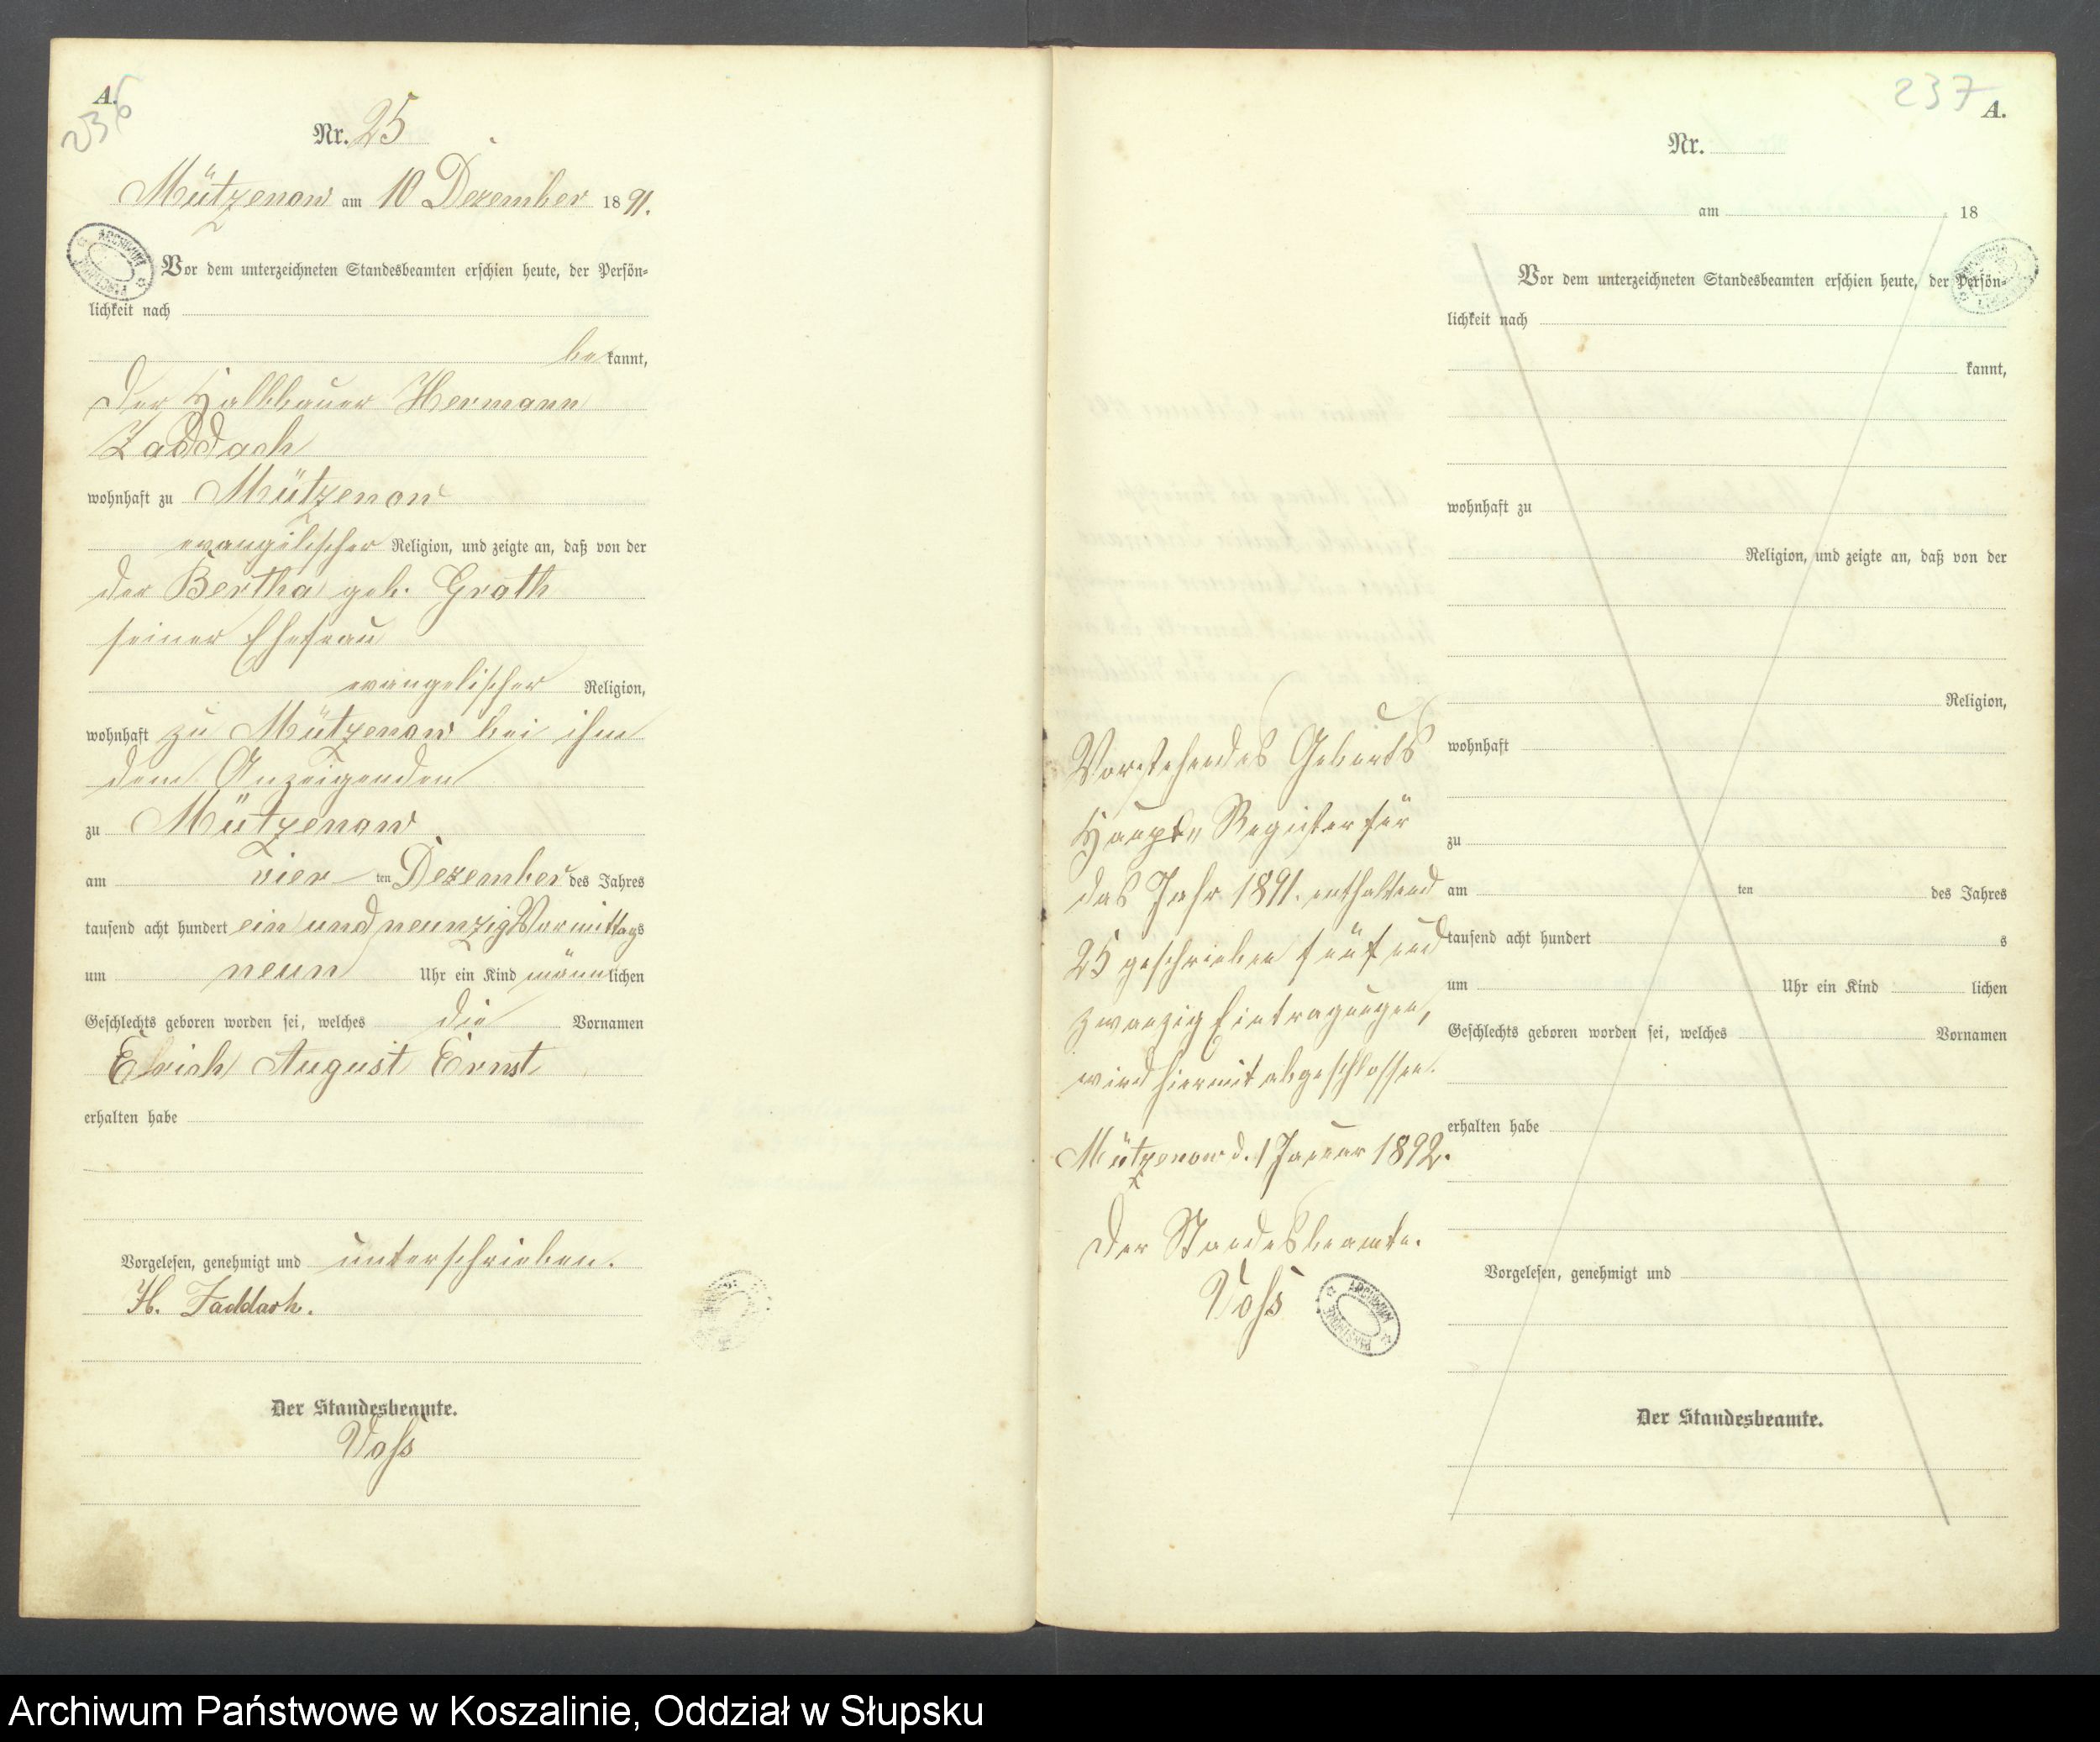 A.
236
Nr. 25
Mützenow am 10 Dezember 1891.
Vor dem unterzeichneten Standesbeamten erschien heute, der Persön-
lichkeit nach
bekannt,
der Halbbauer Hermann
Zaddach
wohnhaft zu Mützenow
evangelischer Religion, und zeigte an, daß von der
der Bertha geb. Groth
seiner Ehefrau
evangelischer Religion,
wohnhaft zu Mützenow bei ihm
dem Anzeigenden
zu Mützenow
am vier ten Dezember des Jahres
tausend acht hundert ein und neunzig Vormittags
um neun Uhr ein Kind männlichen
Geschlechts geboren worden sei, welches die Vornamen
Erich August Ernst
erhalten habe
Vorgelesen, genehmigt und unterschrieben.
H. Zaddach.
Der Standesbeamte.
Voß
Vorstehendes Geburts
Haupt-Register für
das Jahr 1891. enthaltend
25 geschrieben fünf und
zwanzig Eintragungen,
wird hiermit abgeschlossen.
Mützenow d. 1 Januar 1892.
Der Standesbeamte.
Voß
ARCHIWUM PAŃSTWOWE
237
A.
Nr.
am 18
Vor dem unterzeichneten Standesbeamten erschien heute, der Persön-
lichkeit nach
kannt,
wohnhaft zu
Religion, und zeigte an, daß von der
Religion,
wohnhaft
zu
am ten des Jahres
tausend acht hundert s
um Uhr ein Kind lichen
Geschlechts geboren worden sei, welches Vornamen
erhalten habe
Vorgelesen, genehmigt und
Der Standesbeamte.
Archiwum Państwowe w Koszalinie, Oddział w Słupsku